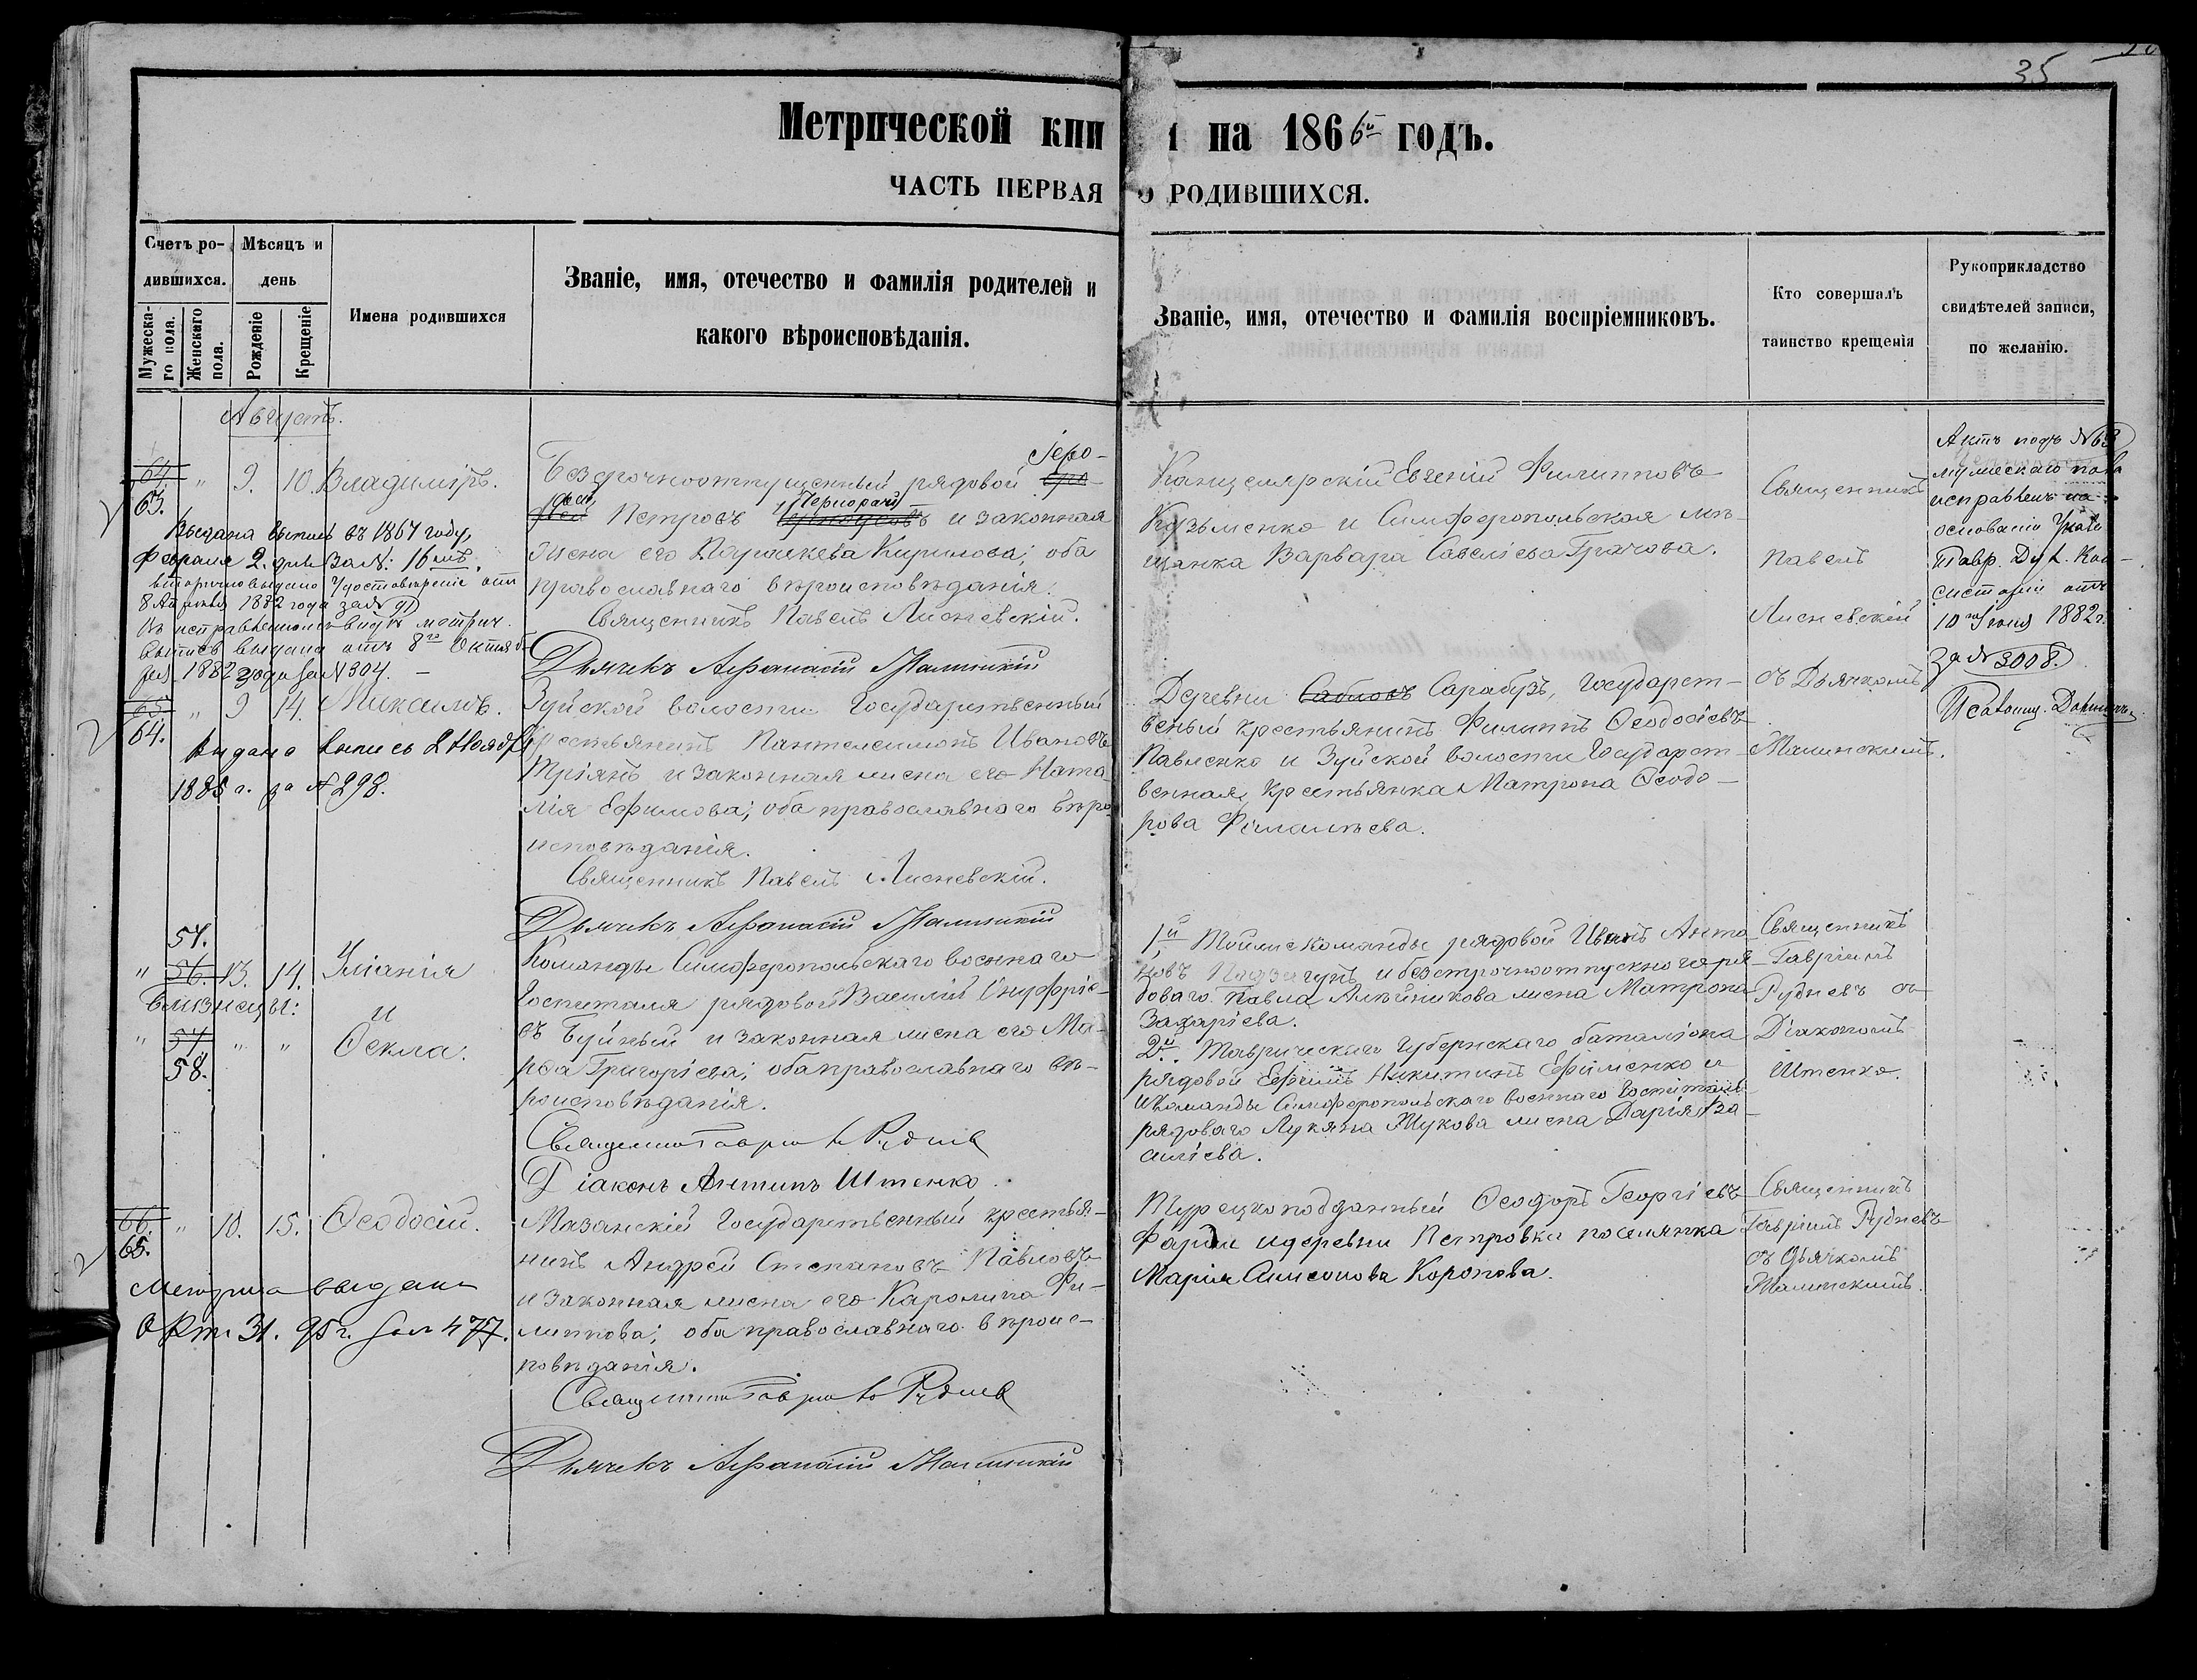 35
Метрической кни
ЧАСТЬ ПЕРВАЯ
на 1866й годъ.
О РОДИВШИХСЯ.
Счетъ ро-
дившихся.
Мужеска-
го пола.
Женскаго
пола.
Мѣсяцъ и
день
Рожденіе
Крещеніе
Имена родившихся
Званіе, имя, отечество и фамилія родителей и
какого вѣроисповѣданія.
Званіе, имя, отечество и фамилія воспріемниковъ.
Кто совершалъ
таинство крещенія
Рукоприкладство
свидѣтелей записи,
по желанію.
Августъ.
64.
63.
" 9. 10. Владиміръ.
Выдана выпись въ 1867 году,
Февраля 2. дня за №: 16мъ.
вторично выдано Удостовѣреніе отъ
8 1882 года за № 91
въ исправленномъ видѣ метрич.
выпись выдана отъ 8го Октяб-
ря 1882 года за № 304. —
Безсрочноотпущенный рядовой Іеро-
фей Петровъ Черногоръ и законная
жена его Параскева Кирилова; оба
православнаго вѣроисповѣданія.
Священникъ Павелъ Лисневскій.
Дьячекъ Аѳанасій Малинскій
Канцелярскій Евгеній Филипповъ
Кузьменко и Симферопольская мѣ-
щанка Варвара Савеліева Грачова.
Священникъ
Павелъ
Лисневскій
съ Дьячкомъ
Малинскимъ.
Актъ подъ № 63
мужескаго пола
исправленъ на
основаніи Указа
Тавр. Дух. Кон-
систоріи отъ
10 Іюня 1882 г.
за № 3008.
65
64.
" 9 14. Михаилъ.
выдана выпись 2 Нояб
1885 г. за № 298.
Зуйской волости Государственный
крестьянинъ Пантелеимонъ Ивановъ
Тріянъ и законная жена его Ната-
лія Ефимова; оба православнаго вѣро-
исповѣданія.
Священникъ Павелъ Лисневскій.
Дьячекъ Аѳанасій Малинскій
Деревни Сабловъ Сарабузъ, Государст-
венный крестьянинъ Филиппъ Ѳеодосіевъ
Павленко и Зуйской волости Государст-
венная крестьянка Матрона Ѳеодо-
рова Филалѣева.
57.
" 56. 13. 14. Уліанія
Близнецы: и
" 57 " " Ѳекла.
58.
Команды Симферопольскаго военнаго
госпиталя рядовой Василій Онуфріе-
въ Буйный и законная жена его Ма-
рѳа Григоріева; оба православнаго вѣ-
роисповѣданія.
Священникъ Гавріилъ Рудневъ
Діаконъ Антипъ Штенко.
1й Тойже команды рядовой Иванъ Анто-
новъ и безсрочноотпускного ря-
доваго Павла Алейникова жена Матрона
Захаріева.
2й. Таврическаго Губернскаго баталіона
рядовой Ефимъ Никитинъ Ефименко и
и Команды Симферопольскаго военнаго Госпиталя
рядоваго Лукяна Жукова жена Дарія Ва-
силіева.
Священникъ
Гавріилъ
Рудневъ съ
Діакономъ
Штенко.
66.
65.
" 10. 15. Ѳеодосій.
Метрика выдана
Окт. 31. 95 г. за № 477.
Мазанскій Государственный крестья-
нинъ Андрей Степановъ Павловъ
и законная жена его Каролина Фи-
липпова; оба православнаго вѣроис-
повѣданія.
Священникъ Гавріилъ Рудневъ
Дьячекъ Аѳанасій Малинскій
Турецкоподданный Ѳеодоръ Георгіевъ
и деревни Петровки поселянка
Марія Симеонова Коропова.
Священникъ
Гавріилъ Рудневъ
съ Дьячкомъ
Малинскимъ.